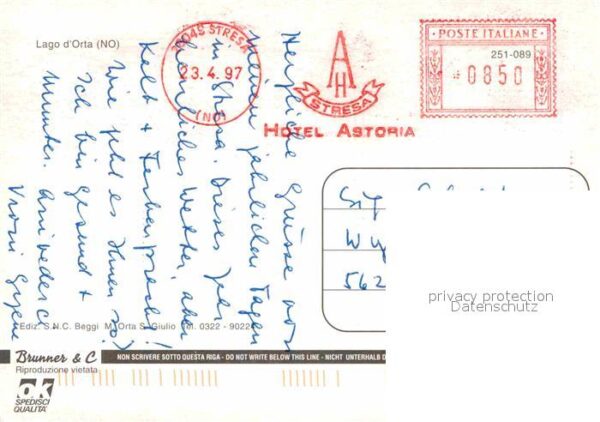 Lago d'Orta (NO)
28049 STRESA
23.4.97
(NO)
AH
STRESA
HOTEL ASTORIA
POSTE ITALIANE
251-089
0850
Herzliche Grüsse von
meinen jährlichen Tagen
in Stresa. Dieses Jahr
herrliches Wetter, aber
Kalt + Farbenpracht!
Wie geht es Ihnen so?
Ich bin gesund +
munter. Arrivederci
Vroni
562
privacy protection
Datenschutz
Ediz. S.N.C. Beggi M. Orta S. Giulio Tel. 0322 - 9022
Brunner & C
NON SCRIVERE SOTTO QUESTA RIGA - DO NOT WRITE BELOW THIS LINE - NICHT UNTERHALB D
Riproduzione vietata
ok
SPEDISCI
QUALITA'